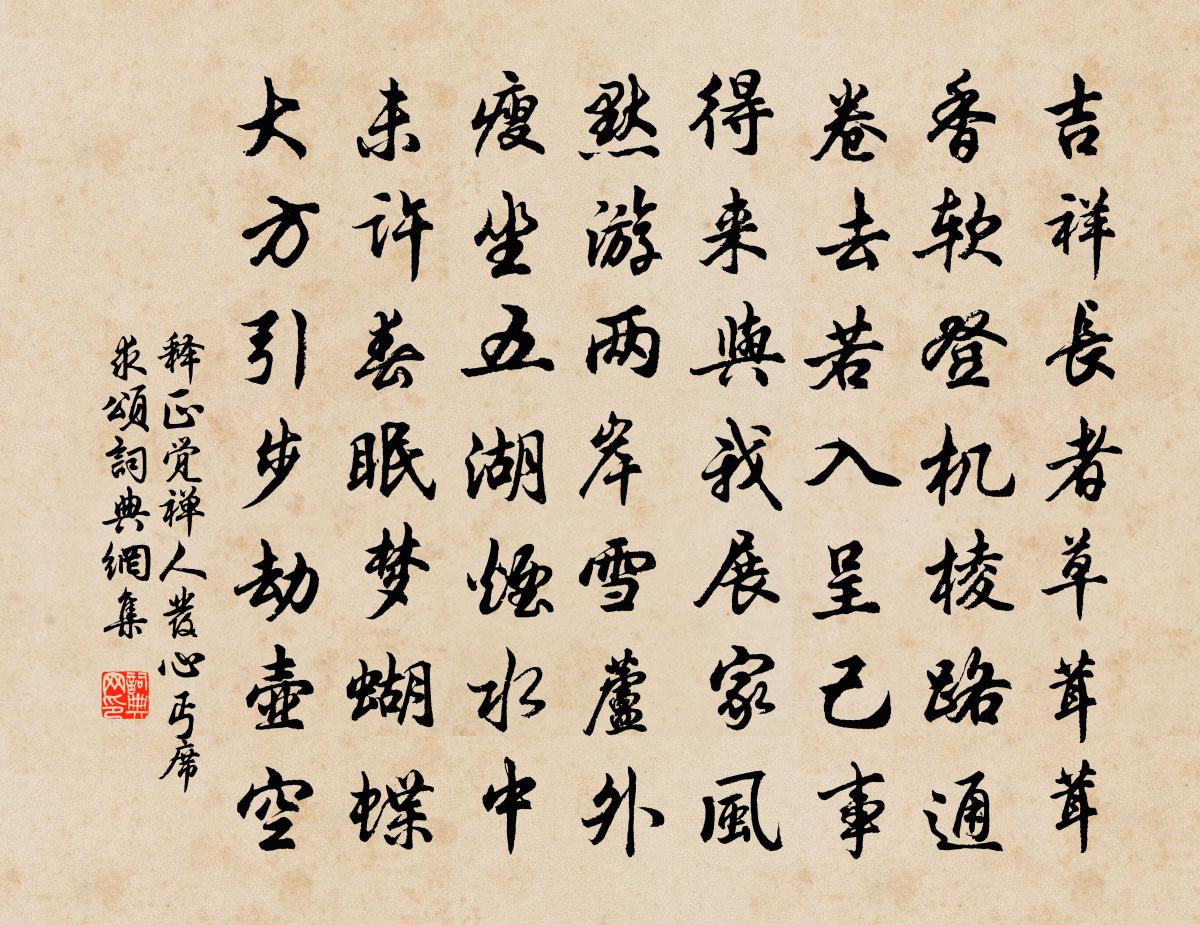 吉祥長者草茸茸
香软登机棱路通
卷去若入呈己事
得来與我展家風
黙游两岸雪蘆外
瘦坐五湖煙水中
未许春眠梦蝴蝶
大方引步劫壶空
释正觉禅人發心丐席
求頌詞典網集
詞典网印